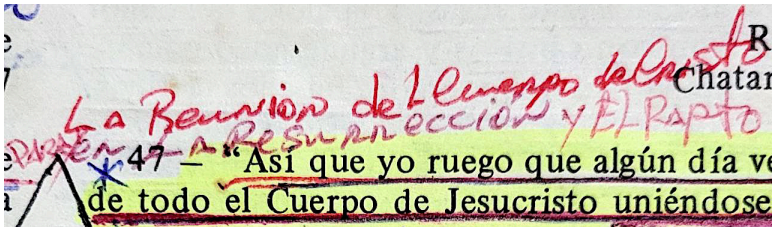 R
La Reunion del Cuerpo de Cristo
Chatar
PARA EN LA RESURRECCION y EL RAPTO
47 – “Así que yo ruego que algún día ve
de todo el Cuerpo de Jesucristo uniéndose